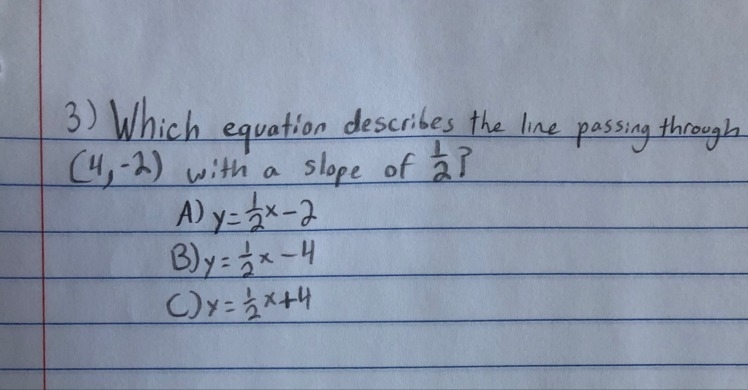 3) Which equation describes the line passing through
(4,-2) with a slope of 1/2?
A) y=1/2x-2
B) y=1/2x-4
C) y=1/2x+4